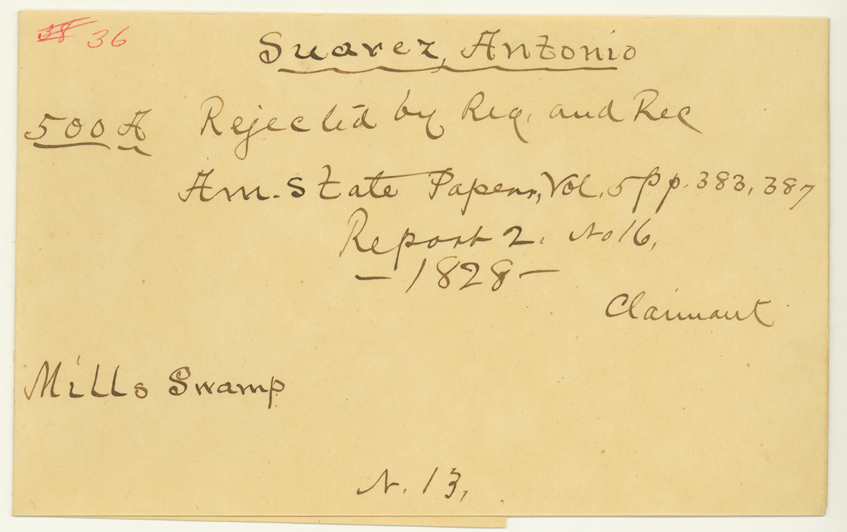 38 36
Suarez, Antonio
500 A Rejected by Reg. and Rec
Am. State Papers, Vol. 5 Pp. 383, 387
Report 2. No 16,
— 1828 —
Claimant
Mills Swamp
N. 13,